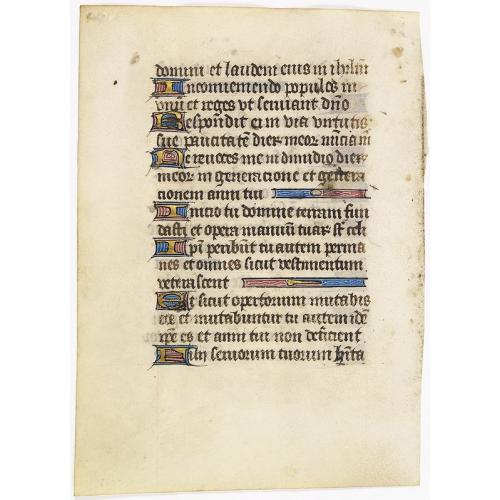 domini et laudem eius in ihrlm
In conueniendo populos in
vnu et reges vt seruiant dno
Respondit ei in via virtutis
sue paucitate dier meor nucia m
Ne reuoces me in dimidio dier
meor in generatione et genera
cionem anni tui
Inicio tu domine terram fun
dasti et opera manuu tuar st celi
Ipi peribut tu autem perma
nes et omnes sicut vestimentum
veterascent
Et sicut opertorium mutabis
eos et mutabuntur tu autem ide
ipse es et anni tui non deficient
Filii seruorum tuorum hita